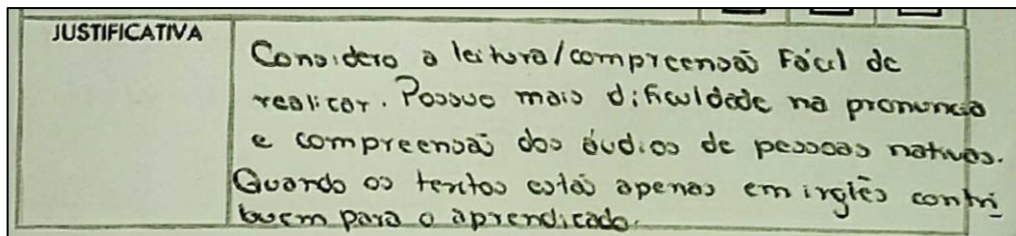 JUSTIFICATIVA
Considero a leitura/compreensão Fácil de
realizar. Possuo mais dificuldade na pronuncia
e compreensão dos áudios de pessoas nativas.
Quando os textos estão apenas em inglês contri
buem para o aprendizado.